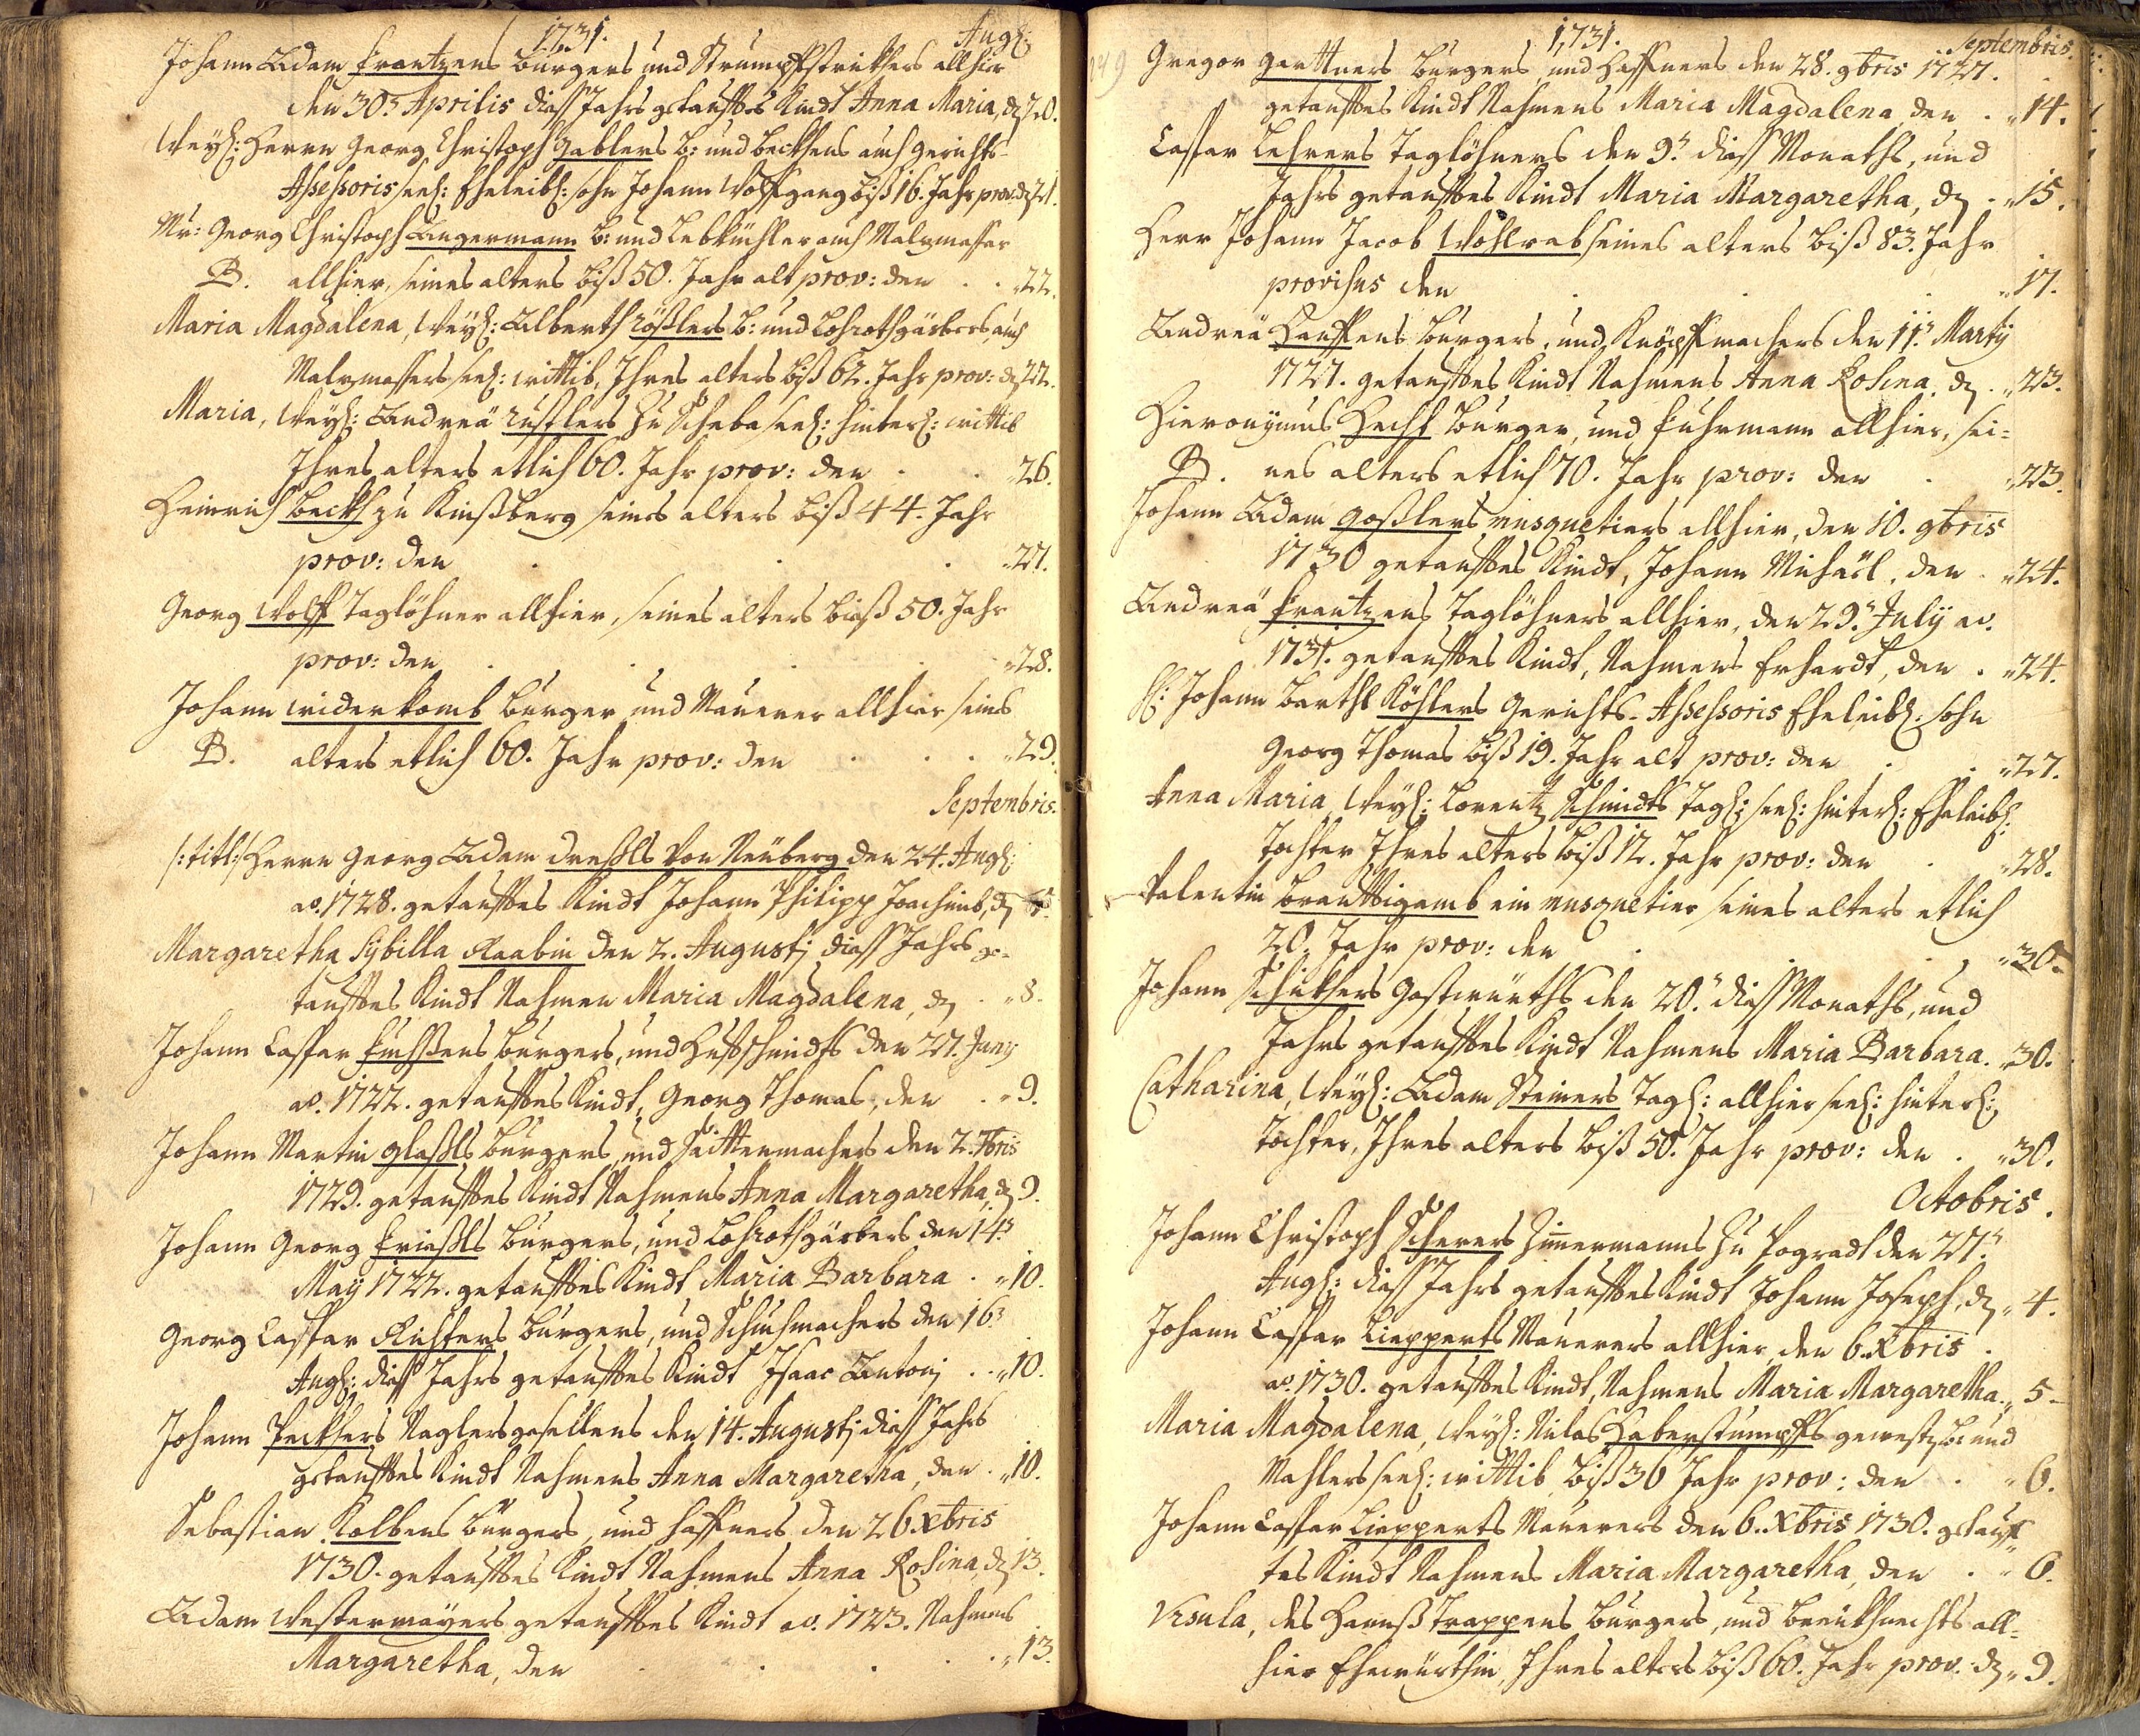 1731. Aug:
Johann Adam Frantzens Burgers und Strumpffstrickers allhier
den 30ᵗ Aprilis diess Jahrs getaufftes Kindt Anna Maria, d 20.
Weyl: Herrn Georg Christoph Gablers b: und Beckhens auch Gerichts-
Assessoris seel: Eheleibl: Sohn Johann Wolffgang biß 16. Jahr prov: d 21.
Mr: Georg Christoph Angermann b: und Lebküchler auch Malzmesser
B. allhier, seines alters biß 50. Jahr alt prov: den . . „22.
Maria Magdalena, Weyl: Alberth Rößlers b: und Lohrothgärbers, auch
Malzmessers seel: wittib, Ihres alters biß 62. Jahr prov: d 22.
Maria, Weyl: Andreä Rustlers zu Scheba seel: hinterl: wittib
Ihres alters etlich 60. Jahr prov: den . . „26.
Heinrich Beckh zu Kinßberg seines alters biß 44. Jahr
prov: den . . . „27.
Georg Wolff Taglöhner allhier, seines alters biß 50. Jahr
prov: den . . . . „28.
Johann Widerkomb Burger und Maurer allhier seines
B. alters etlich 60. Jahr prov: den . . . „29.
Septembris.
/:titl:/ Herrn Georg Adam Dreßls von Neüberg den 24. Aug:
ao. 1728. getaufftes Kindt Johann Philipp Joachimb, d
Margaretha Sybilla Raabin den 2. Augusti diess Jahrs ge-
taufftes Kindt Nahmen Maria Magdalena, d . „8.
Johann Caspar Fuchßens Burgers, und Hufschmidts den 27. Juny
ao. 1722. getaufftes Kindt, Georg Thomas, den . „9.
Johann Martin Glaßls Burgers, und Saittenmachers den 2. 7bris
1729. getaufftes Kindt Nahmens Anna Margaretha, d 9.
Johann Georg Frießls Burgers, und Lohrothgärbers den 14ᵗ
May 1722. getaufftes Kindt Maria Barbara . „10.
Georg Caspar Richters Burgers, und Schuhmachers den 16ᵗ
Aug: diess Jahrs getaufftes Kindt Isaac Antonj . . „10.
Johann Peckhers Naglersgesellens den 14. Augusti diess Jahrs
getaufftes Kindt Nahmens Anna Margaretha, den . „10.
Sebastian Kolbens Burgers, und Haffners den 26. Xbris
1730. getaufftes Kindt Nahmens Anna Rosina, d 13.
Adam Westermayers getaufftes Kindt ao. 1723. Nahmens
Margaretha, den . . . . „13.
1731. Septembris.
Gregor Garttners Burgers und Haffners den 28. 9bris 1727.
getaufftes Kindt Nahmens Maria Magdalena den . „14.
Caspar Lehrers Taglöhners den 9ᵗ diess Monaths, und
Jahrs getaufftes Kindt Maria Margaretha, d . „15.
Herr Johann Jacob Wohlrab seines alters biß 83. Jahr
provisus den . . . „17.
Andreä Hanffens Burgers, und Knöpffmachers den 11ᵗ Marty
1727. getaufftes Kindt Nahmens Anna Rosina, d . „23.
Hieronymus Hecht Burger, und Fuhrmann allhier, sei-
B. nes alters etlich 70. Jahr prov: den . „23.
Johann Adam Goßlers musquetiers allhier, den 10. 9bris
1730 getaufftes Kindt, Johann Michäel, den . „24.
Andreä Frantzens Taglöhners allhier, den 29ᵗ July ao.
1731. getaufftes Kindt, Nahmens Erhardt, den . „24.
H: Johann Barthl Köhlers Gerichts-Assessoris Eheleibl: Sohn
Georg Thomas biß 19. Jahr alt prov: den . . „27.
Anna Maria, Weyl: Lorentz Schmidts Tagl: seel: hinterl: Eheleibl:
Tochter Ihres alters biß 12. Jahr prov: den . „28.
Valentin Brauttigamb ein musquetier seines alters etlich
20. Jahr prov: den . . „30.
Johann Schickhers Gastwürths den 20ᵗ diess Monaths, und
Jahrs getaufftes Kindt Nahmens Maria Barbara. „30.
Catharina, Weyl: Adam Steiners Tagl: allhier seel: hinterl:
Tochter, Ihres alters biß 50. Jahr prov: den . „30.
Octobris.
Johann Christoph Scherers Zimmermanns zu Pograth den 27ᵗ
Aug: diess Jahrs getaufftes Kindt Johann Joseph, d „4.
Johann Caspar Liepperts Maurers allhier den 6. Xbris
ao. 1730. getaufftes Kindt, Nahmens Maria Margaretha. „5.
Maria Magdalena, Weyl: Niclas Haberstumpffs gewest b: und
Mahlers seel: wittib, biß 36 Jahr prov: den . „6.
Johann Caspar Liepperts Maurers den 6. Xbris 1730. getauff-
tes Kindt Nahmens Maria Margaretha, den . „6.
Ursula, des Hannß Trappens Burgers, und Breükhnechts all-
hier Ehewürthin, Ihres alters biß 60. Jahr prov. d „9.